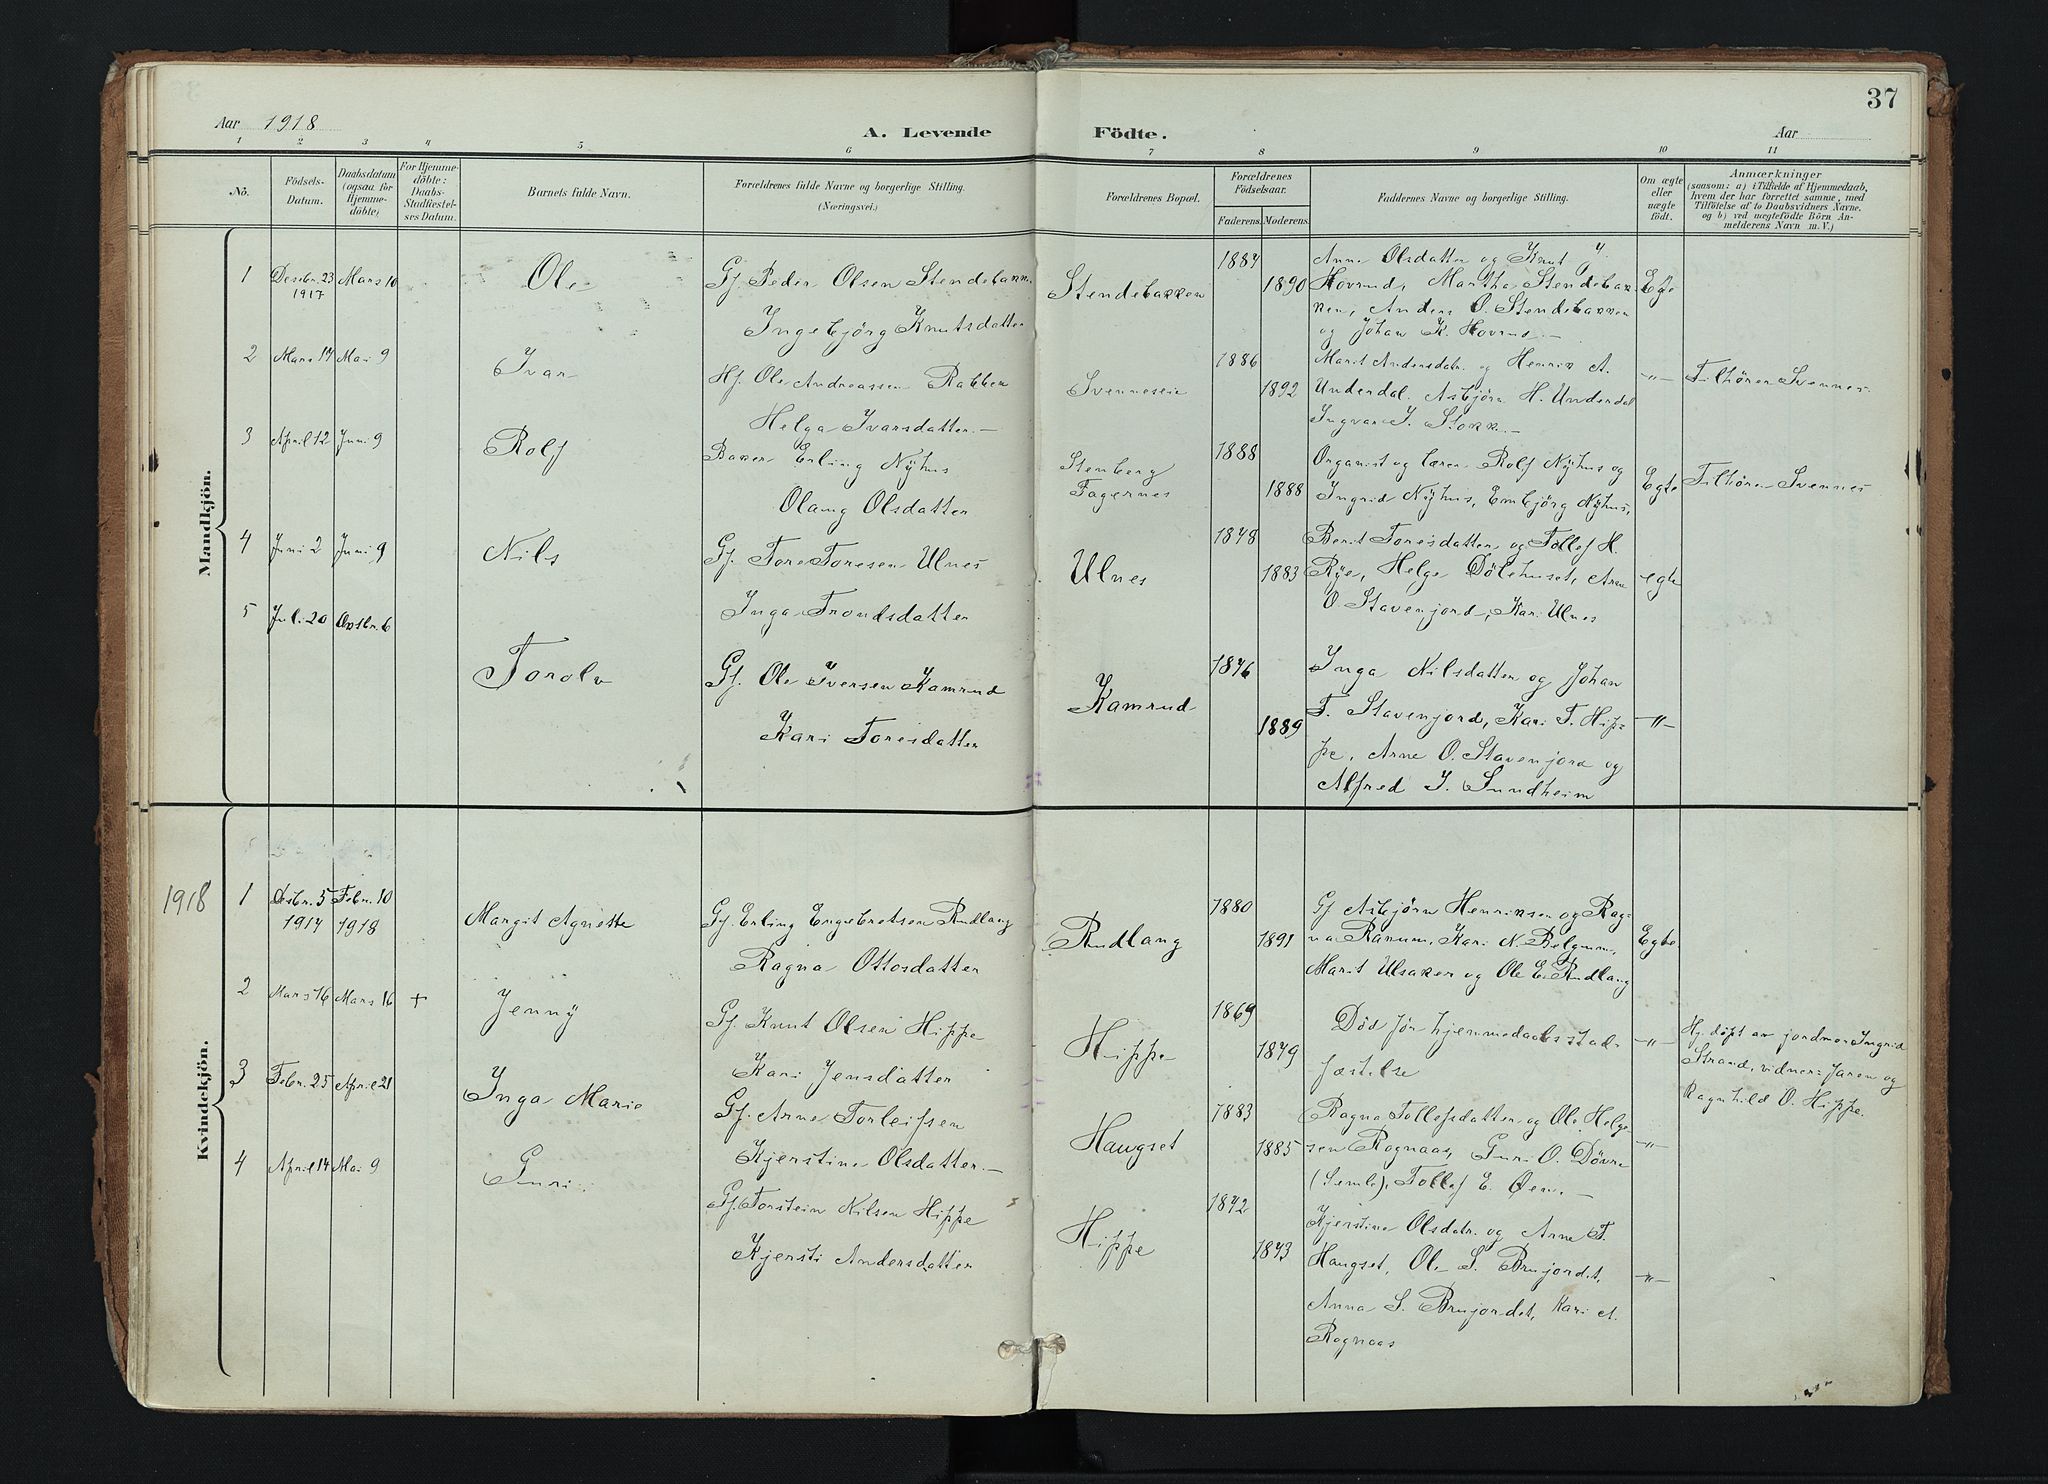 37
Aar 1918
A. Levende
Födte.
Aar
1 2 3 4 5 6 7 8 9 10 11
No.
Födsels-Datum.
Daabsdatum (ogsaa for Hjemmedöbte)
For Hjemmedöbte: Daabs-Stadfestelses Datum.
Barnets fulde Navn.
Forældrenes fulde Navne og borgerlige Stilling.
(Næringsvei.)
Forældrenes Bopæl.
Forældrenes Födselsaar.
Faderens. Moderens.
Faddernes Navne og borgerlige Stilling.
Om ægte eller uægte födt.
Anmærkninger
(saasom: a) i Tilfælde af Hjemmedaab, hvem der har forrettet samme, med Tilföielse af to Daabsvidners Navne. og b) ved uegtefödte Börn Anmelderens Navn m. V.)
Mandkjön.
1 Desbr. 23 1917 Mars 10 Ole
Gj. Peder Olsen Stendebakk.
Ingebjörg Knutsdatter
Stendebakken 1884 1890
Anne Olsdatter og Knut J.
Hovrud, Martha Stendebak-
ken, Anders O. Stendebakken
og Johan K. Hovrud.—
Egte
2 Mars 17 Mai 9 Ivar
Hj. Ole Andreassen Rabben
Helga Ivarsdatter.—
Svenneseie 1886 1892
Marit Andersdatr. og Henrik A.
Underdal. Asbjörn H. Underdal
Ingvar I. Stokk.—
—"— Tilhörer Svennes.
3 April 12 Juni 9 Rolf
Baker Erling Nÿhus
Olaug Olsdatter
Stenberg
Fagernes 1888 1888
Organist og lærer Rolf Nÿhus og
Ingrid Nÿhus, Embjörg Nÿhus,
Egte Tilhörer Svennes
4 Juni 2 Juni 9 Nils
Gj. Tore Toresen Ulnes
Inga Trondsdatter
Ulnes 1878 1883
Berit Toresdatter og Tollef H.
Rÿe, Helge Dölehuset, Arne
O. Stavenjord, Kari Ulnes
egte
5 Juli 20 Oktbr. 6 Torolv
Gj. Ole Iversen Kamrud
Kari Toresdatter
Kamrud 1876 1889
Inga Nilsdatter og Johan
T. Stavenjord, Kari T. Hip-
pe, Arne O. Stavenjord og
Alfred I. Sundheim
—"—
Kvindekjön.
1918
1 Desbr. 5 1917 Febr. 10 1918 Margit Agnette
Gj. Erling Engebretsen Rudlang
Ragna Ottosdatter
Rudlang 1880 1891
Gj Asbjörn Henriksen og Rag-
na Ranum, Kari N. Belgum,
Marit Ulsaker og Ole E. Rudlang
Egte
2 Mars 16 Mars 16 + Jennÿ
Gj. Knut Olsen Hippe
Kari Jensdatter
Hippe 1869 1879
Död för hjemmedaabsstad-
fæstelse
—"— Hj. döpt av jordmor Ingrid
Strand, vidner: faren og
Ragnhild O. Hippe.
3 Febr. 25 April 21 Inga Marie
Gj. Arne Torleifsen
Kjerstine Olsdatter.—
Haugset 1883 1885
Ragna Tollefsdatter og Ole Helge-
sen Rognaas, Guri O. Dövre
(Semle), Tollef E. Øen.—
—"—
4 April 14 Mai 9 Guri
Gj. Torstein Nilsen Hippe
Kjersti Andersdatter
Hippe 1872 1873
Kjerstine Olsdatr. og Arne T.
Haugset, Ole S. Brujordet,
Anna S. Brujordet, Kari A.
Rognaas
—"—